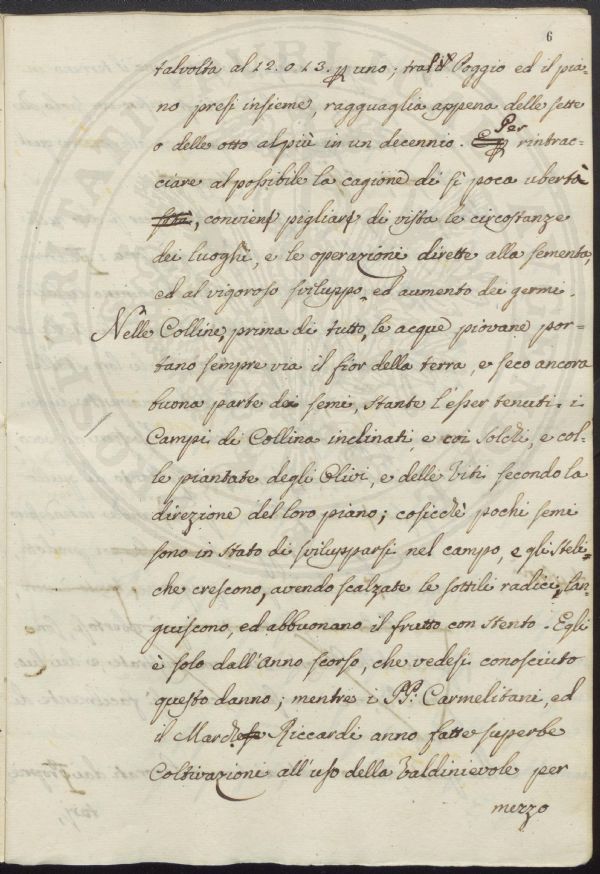 6
talvolta al 12. o 13. p uno; tra il Poggio ed il pia=
no presi insieme, ragguaglia appena delle sette
o delle otto al più in un decennio. Per rintrac=
ciare al possibile la cagione di sì poca ubertà
, convien pigliar di vista le circostanze
dei luoghi, e le operazioni dirette alla sementa,
ed al vigoroso sviluppo, ed aumento dei germi.
Nelle Colline, prima di tutto, le acque piovane por=
tano sempre via il fior della terra, e seco ancora
buona parte dei semi, stante l'esser tenuti i
Campi di Collina inclinati e coi solchi, e col=
le piantate degli Olivi, e delle Viti secondo la
direzione del loro piano; cosicchè pochi semi
sono in stato di svilupparsi nel campo, e gli steli
che crescono, avendo scalzate le sottili radici, lan=
guiscono, ed abbuonano il frutto con stento. Egli
è solo dall'anno scorso, che vedesi conosciuto
questo danno; mentre i PP: Carmelitani, ed
il March.se Riccardi anno fatte superbe
Coltivazioni all'uso della Valdinievole per
mezzo